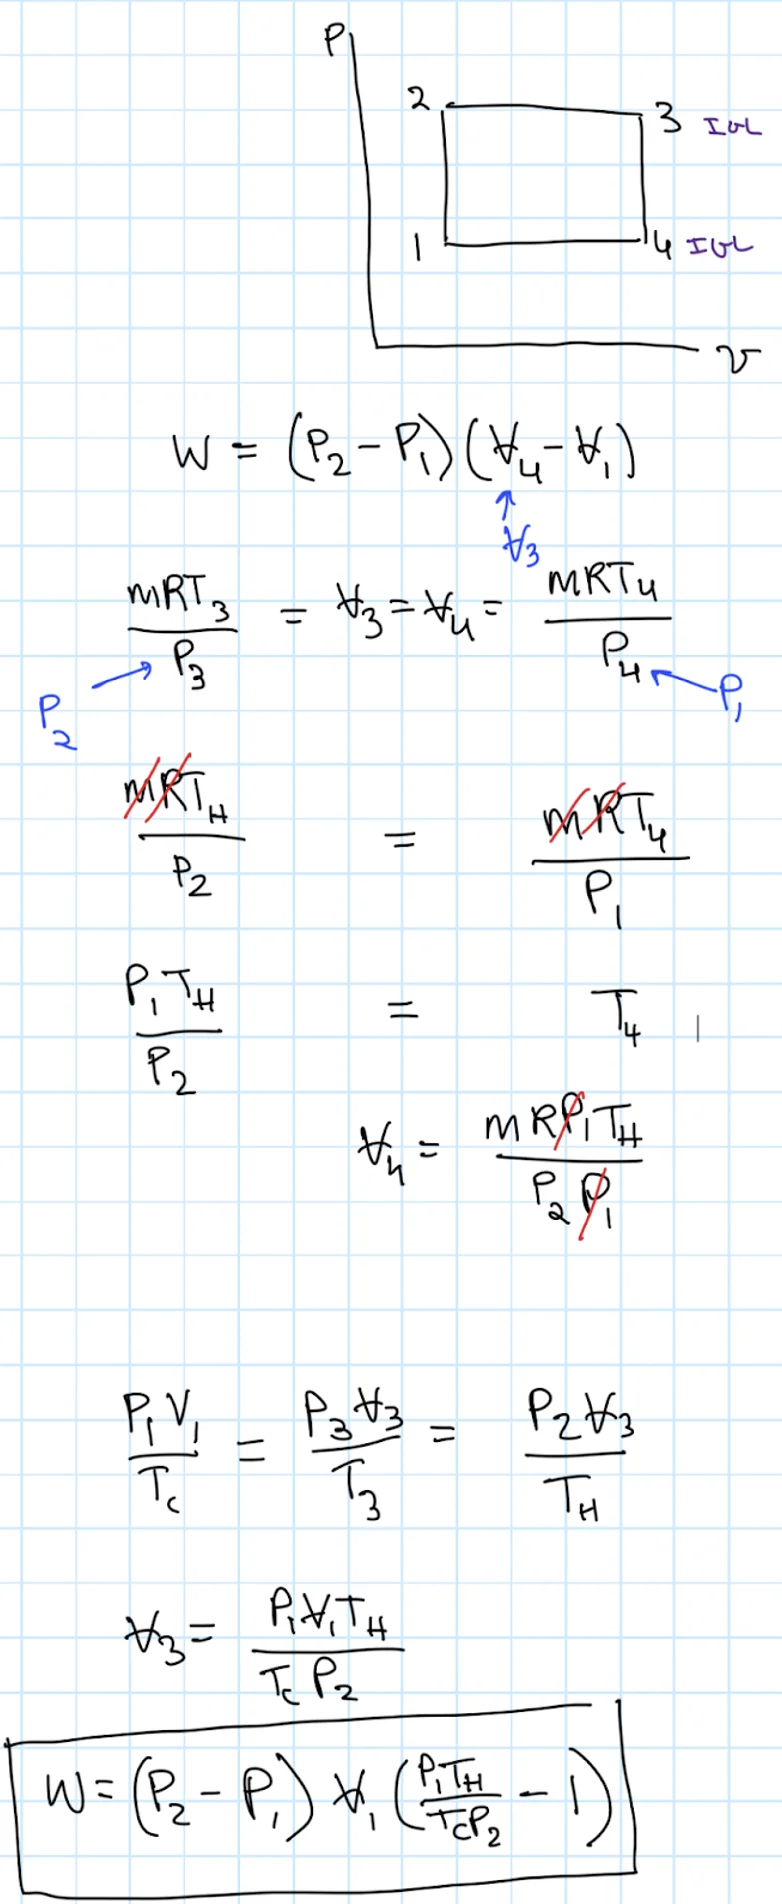 P
2 3 IGL
1 4 IGL
v
W = (P₂ - P₁)(V̶₄ - V̶₁)
↑
V̶₃
mRT₃ / P₃ = V̶₃ = V̶₄ = mRT₄ / P₄
P₂ → ← P₁
mRT_H / P₂ = mRT₄ / P₁
P₁T_H / P₂ = T₄
V̶₄ = mRP₁T_H / P₂P₁
P₁V₁ / T_c = P₃V̶₃ / T₃ = P₂V̶₃ / T_H
V̶₃ = P₁V̶₁T_H / T_cP₂
W = (P₂ - P₁) V̶₁ (P₁T_H / T_cP₂ - 1)